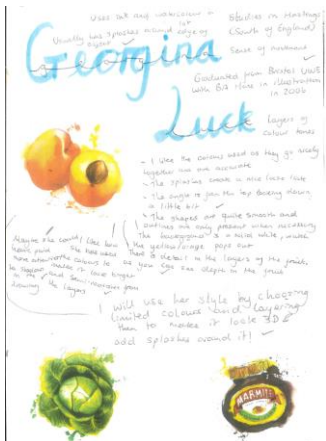 Uses ink and watercolour a lot
Usually has splashes around edge of
Studies in Hastings
(South of England)
Georgina
Sense of movement
Graduated from Bristol UWE
with BA Hons in illustration
in 2006
Luck
layers of
colour tones
- I like the colours used as they go nicely
together and are accurate
- The splashes create a nice loose look
- The angle is from the top looking down
a little bit
- The shapes are quite smooth and
outlines are only present when necessary
The background is a nice white, makes
the yellow/orange pop out
There is detail in the layers of the fruit,
you can see depth in the fruit
Maybe she could
She has used
the colours to
makes it look bigger
drawing the layers
I will use her style by choosing
limited colours and layering
them to make it look 3D &
add splashes around it!
MARMITE